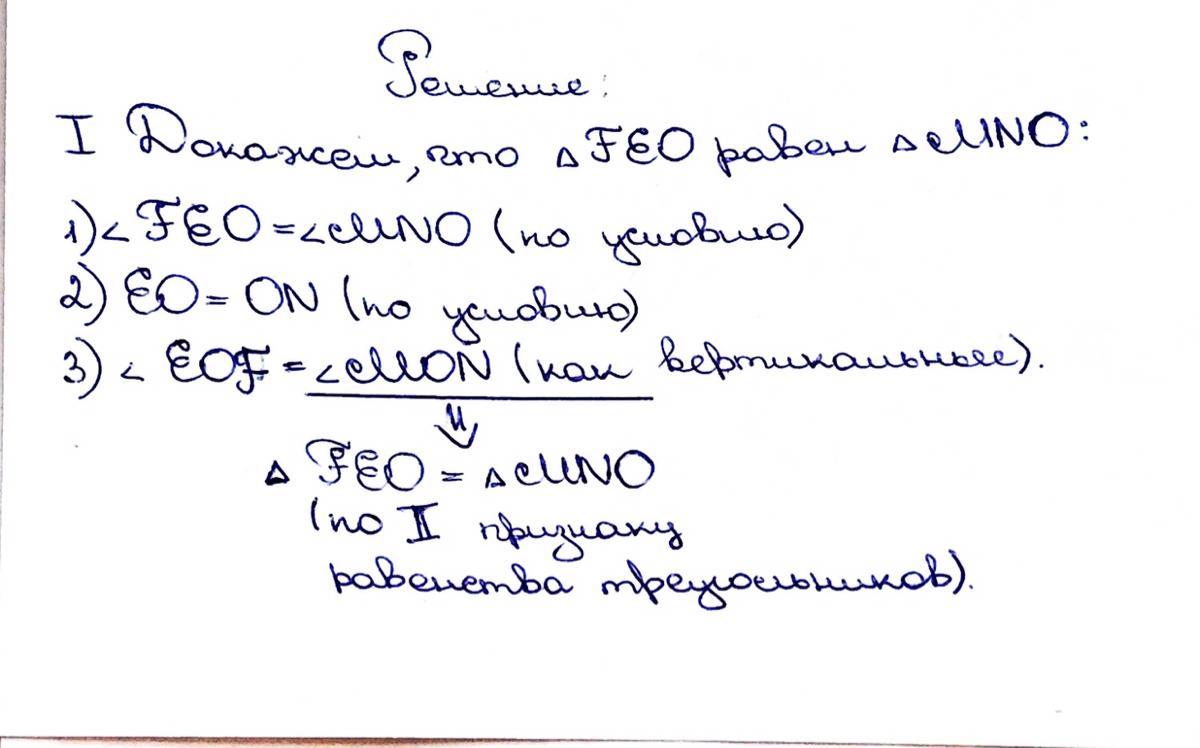 Решение:
I Докажем, что △FEO равен △MNO:
1) <FEO=<MNO (по условию)
2) EO=ON (по условию)
3) <EOF=<MON (как вертикальные).
⇓
△FEO=△MNO
(по II признаку
равенства треугольников).